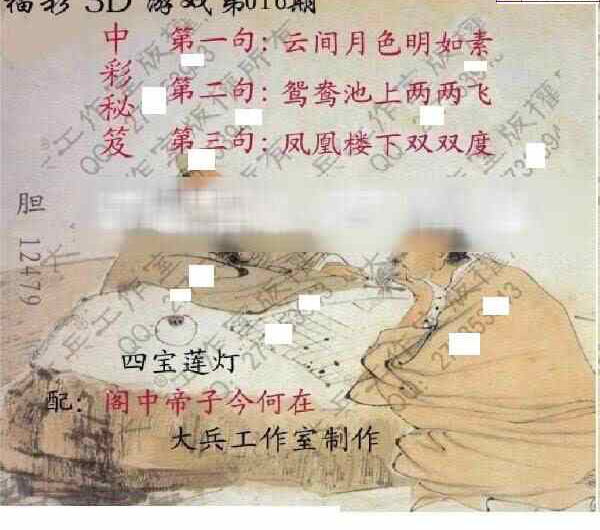 福彩3D游戏第016期
中彩秘笈
第一句：云间月色明如素
第二句：鸳鸯池上两两飞
第三句：凤凰楼下双双度
胆 12479
四宝莲灯
配：阁中帝子今何在
大兵工作室制作